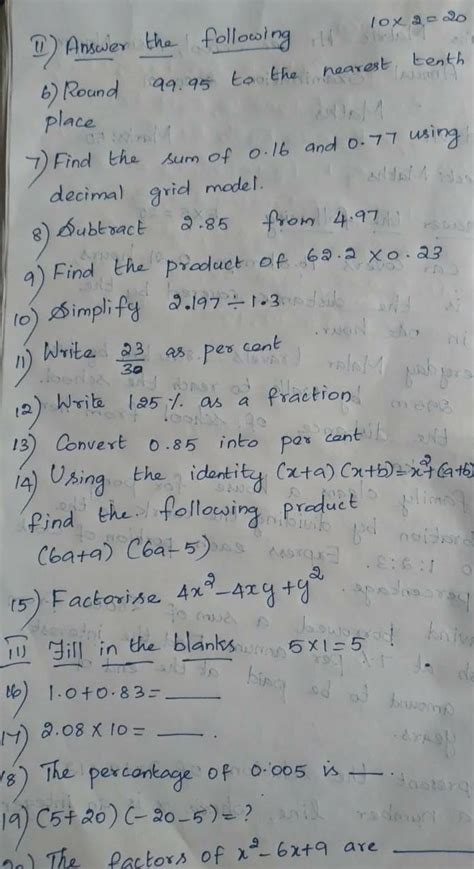 10 x 2 = 20
II) Answer the following
6) Round 99.95 to the nearest tenth
place
7) Find the sum of 0.16 and 0.77 using
decimal grid model.
8) Subtract 2.85 from 4.97
9) Find the product of 62.2 x 0.23
10) Simplify 2.197 ÷ 1.3
11) Write 23/30 as per cent
12) Write 125 % as a fraction
13) Convert 0.85 into per cent
14) Using the identity (x+a) (x+b) = x²+(a+b)
find the following product
(6a+a) (6a-5)
15) Factorise 4x²-4xy+y²
III Fill in the blanks 5x1=5
16) 1.0+0.83= ____
17) 2.08 x 10 = ____.
18) The percentage of 0.005 is __.
19) (5+20) (-20-5)= ?
20) The factors of x²-6x+9 are ____